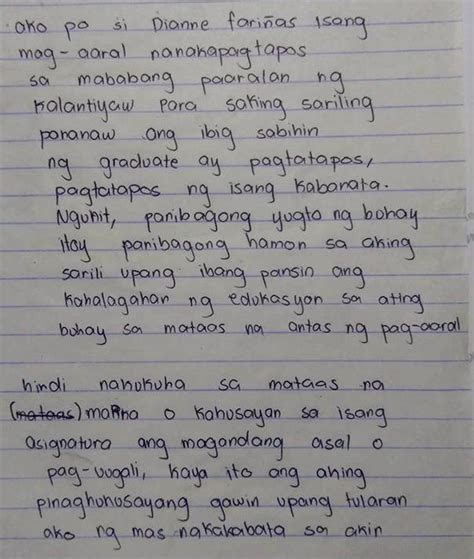 ako po si Dianne fariñas isang
mag-aaral nanakapagtapos
sa mababang paaralan ng
Kalantiyaw para saking sariling
pananaw ang ibig sabihin
ng graduate ay pagtatapos,
pagtatapos ng isang kabanata.
Ngunit, panibagong yugto ng buhay
Itoy panibagong hamon sa aking
sarili upang ibang pansin ang
kahalagahan ng edukasyon sa ating
buhay sa mataas na antas ng pag-aaral
hindi nakukuha sa mataas na
(mataas) marka o kahusayan sa isang
asignatura ang magandang asal o
pag-uugali, kaya ito ang aking
pinaghuhusayang gawin upang tularan
ako ng mas nakakabata sa akin